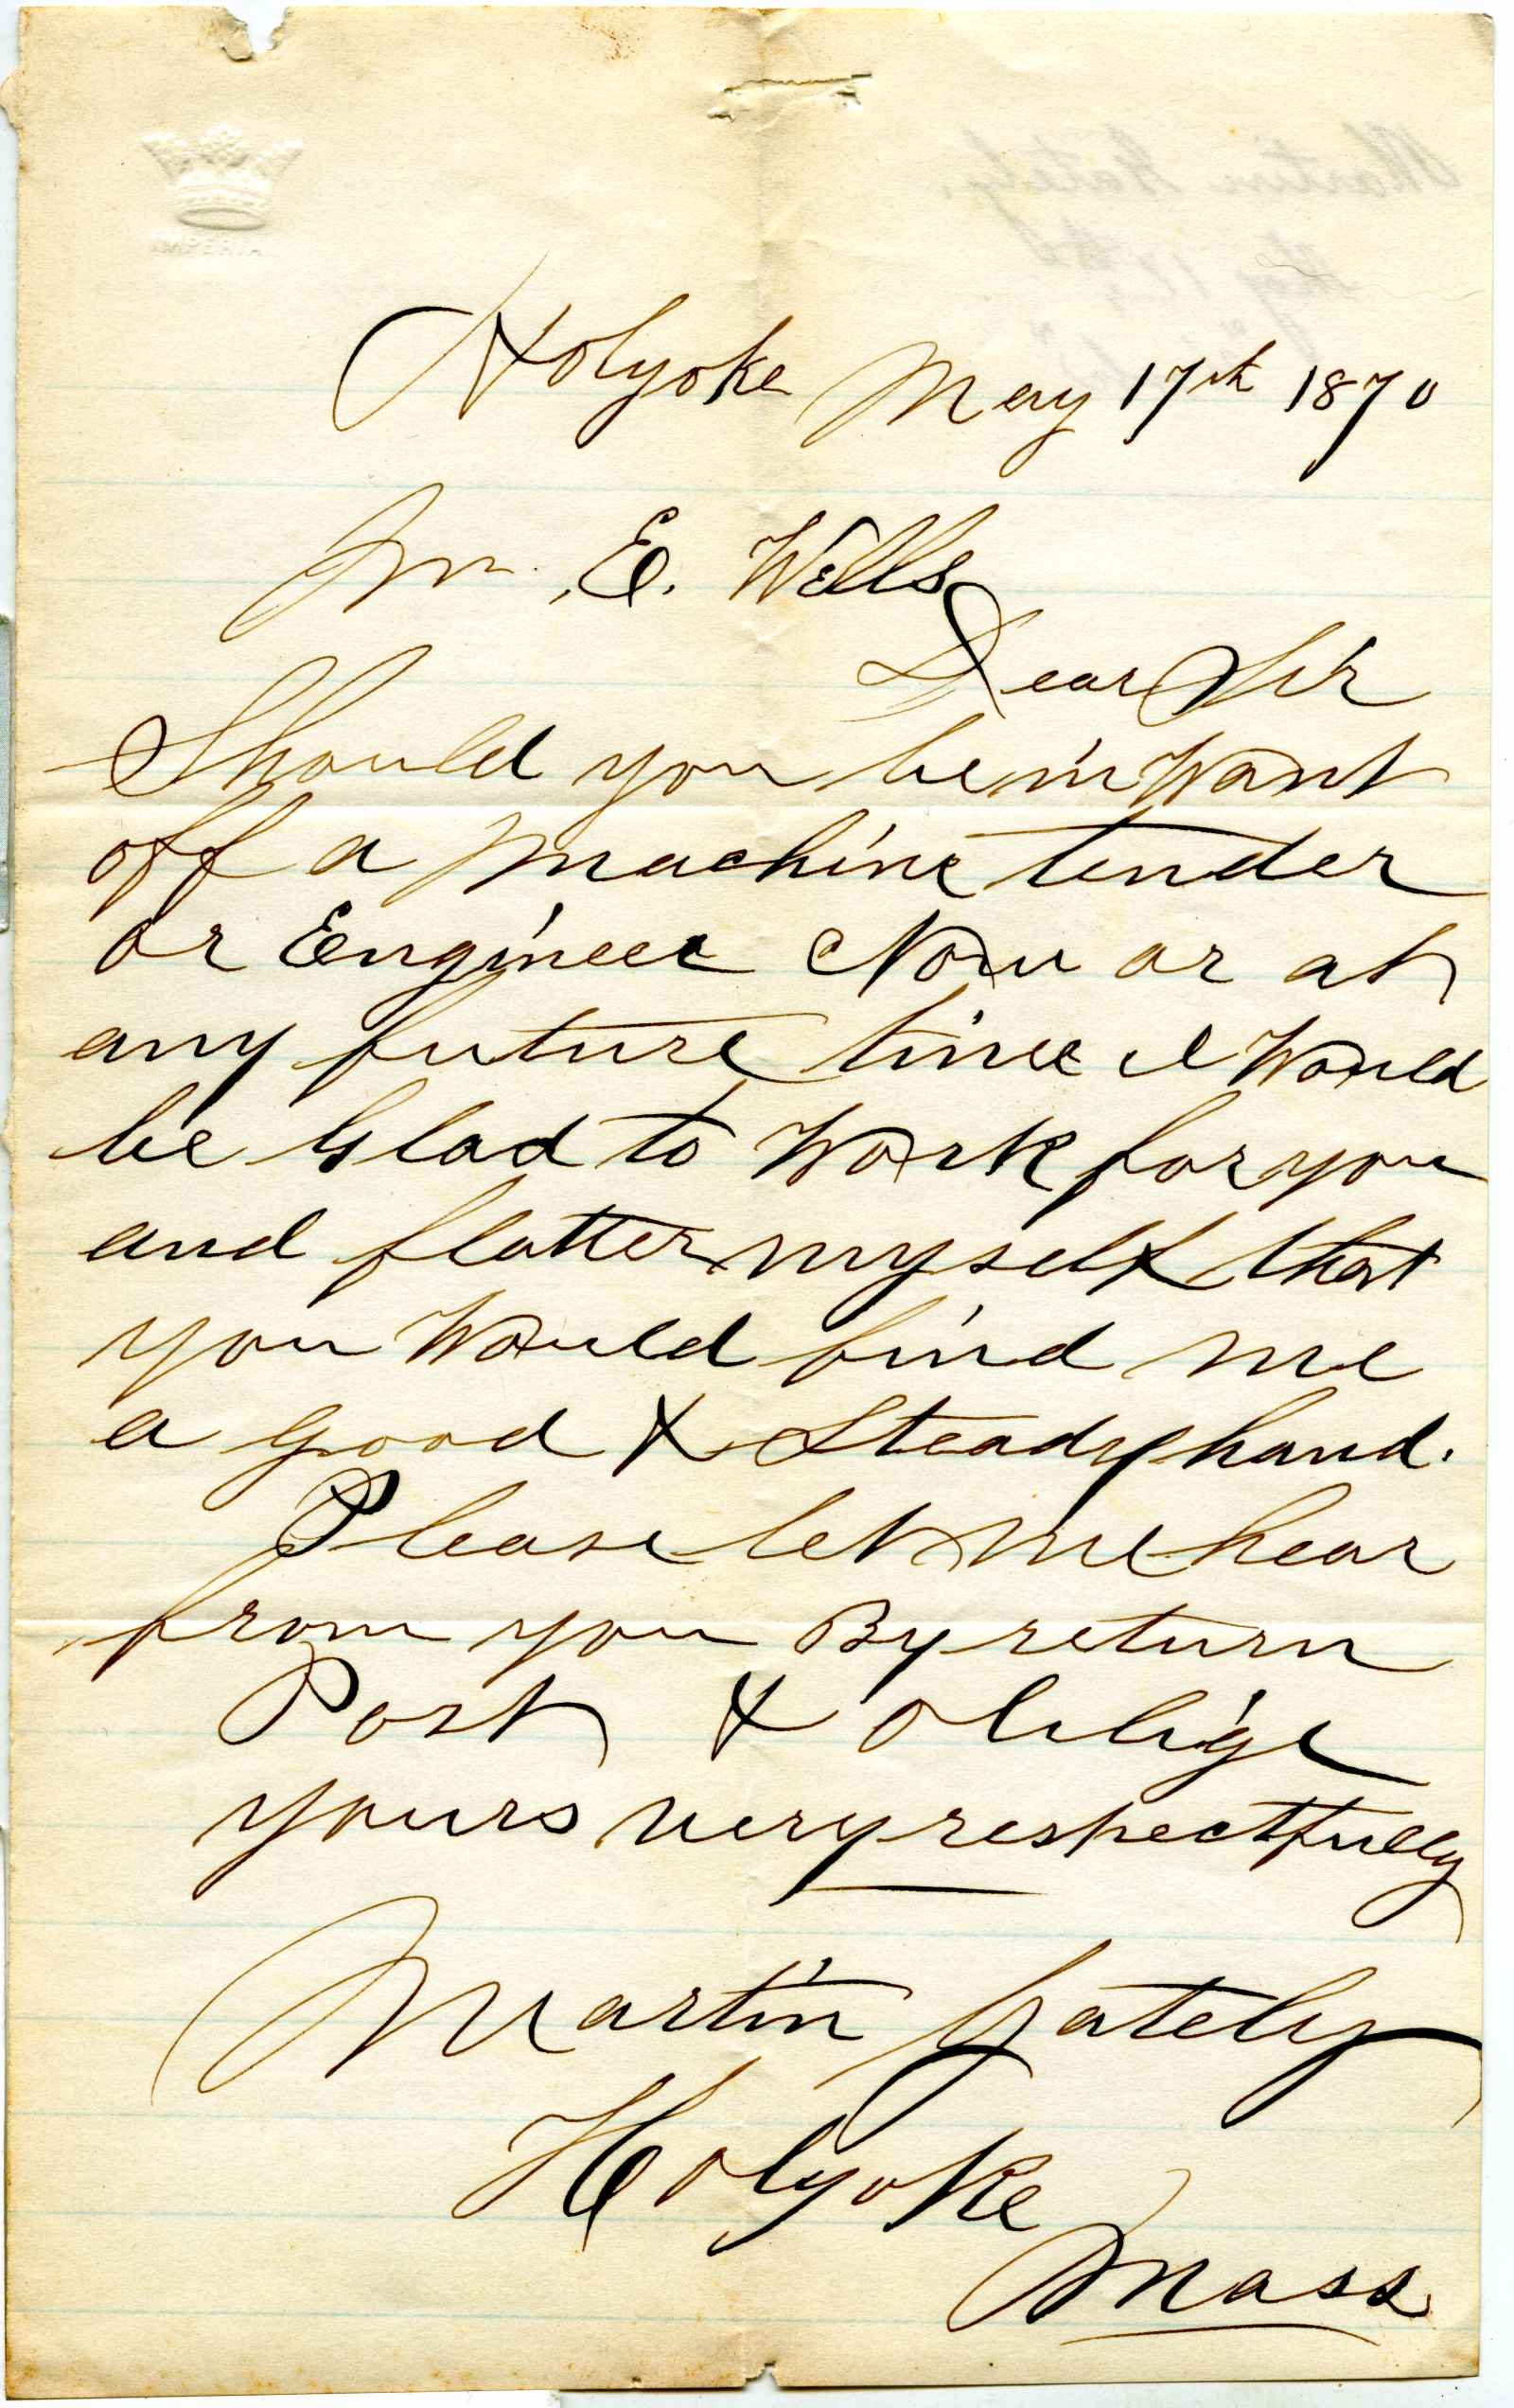 Holyoke May 17th 1870
Mr. E. Wells
Dear Sir
Should you be in Want
off a Machine tender
or Engineer Now or at
any future time I Would
be Glad to Work for you
and flatter myself that
you Would find me
a good & Steady hand.
Please let me hear
from you By return
Post & oblige
yours very respectfully
Martin Gately
Holyoke
Mass